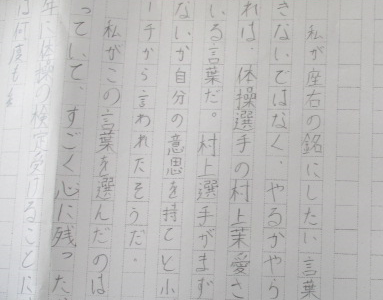 私が座右の銘にしたい言葉
きないではなく、やるかやら
れは、体操選手の村上茉愛さ
いる言葉だ。村上選手がまず
ないか自分の意思を持てと小
ーチから言われたそうだ。
私がこの言葉を選んだのは
っていて、すごく心に残った
年に体操 検定受けることに
は何度も